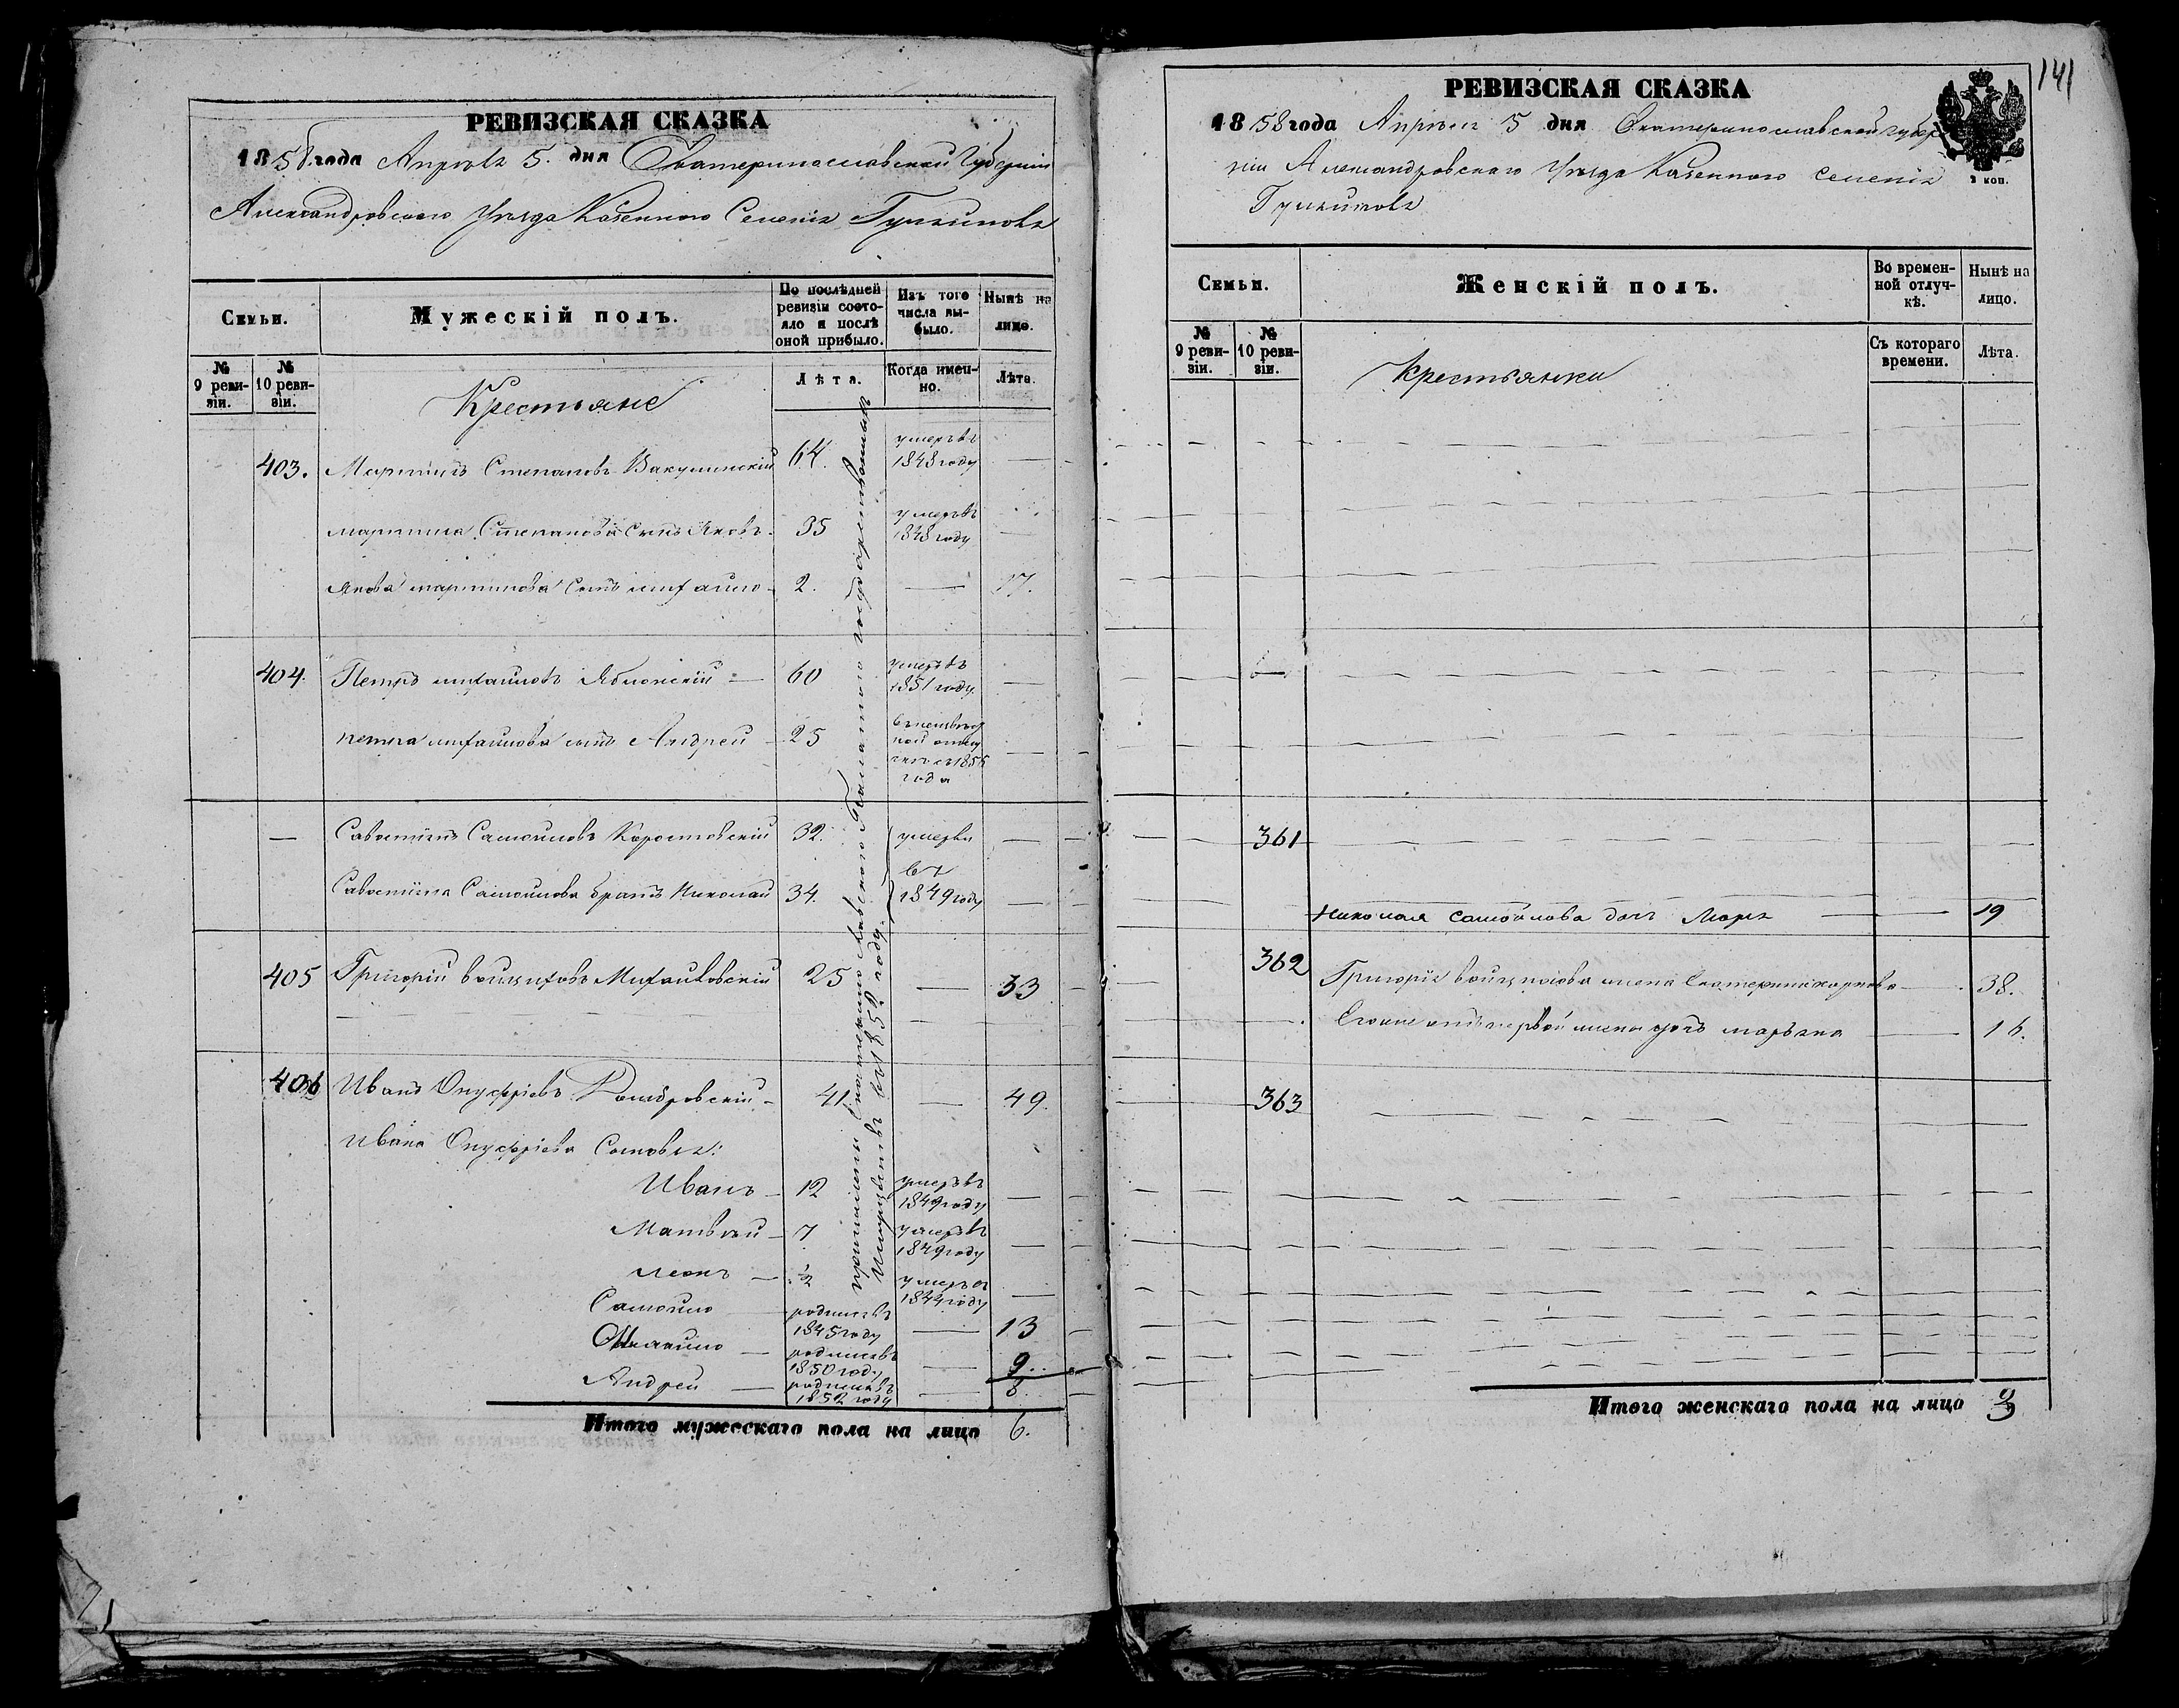 РЕВИЗСКАЯ СКАЗКА
1858 года Апрѣля 5. дня Екатеринославской Губерніи
Александровского Уѣзда Казенного Селенія
Семьи.
Мужескій полъ.
По послѣдней ревизіи состояло и послѣ оной прибыло.
Изъ того числа выбыло.
Нынѣ на лицо.
№ 9 ревизіи.
№ 10 ревизіи.
Крестьяне
Лѣта.
Когда именно.
Лѣта.
403. Мартинъ Степановъ 64. умеръ въ 1848 году —
мартина Степанова Сынъ Яковъ 35 умеръ въ 1848 году —
Якова мартинова Сынъ михайло 2. — 17.
404. Петръ михайловъ Яблонскій — 60 умеръ въ 1851 году —
петра михайлова сынъ Андрей 25 —
— Савостіянъ Самойловъ Коростовскій 32. умерли —
Савостіяна Самойлова братъ Николай 34. въ 1849 году —
405 Григорій 25 — 33
406 Иванъ Онуфріевъ 41. — 49.
Ивана Онуфріева Сыновья:
Иванъ — 12 умеръ въ 1849 году —
Матвѣй — 7 умеръ въ 1849 году —
— ½ умеръ въ 1844 году —
Самойло — родился въ 1845 году — 13
родился въ 1850 году — 9.
Андрей — родился въ 1852 году — 6.
въ 1852 году.
Итого мужескаго пола на лицо 6.
141
РЕВИЗСКАЯ СКАЗКА
1858 года Апрѣля 5 дня Екатеринославской Губер
ніи Александровскаго Уѣзда Казенного селенія
2 коп.
Семьи.
Женскій полъ.
Во временной отлучкѣ.
Нынѣ на лицо.
№ 9 ревизіи.
№ 10 ревизіи.
Крестьянки
Съ котораго времени.
Лѣта.
361
Николая самойлова дочь — 19
362 Григорія жена Екатерина — 38.
Егоже отъ первой жены дочь марьяна — 16.
363
Итого женскаго пола на лицо 3